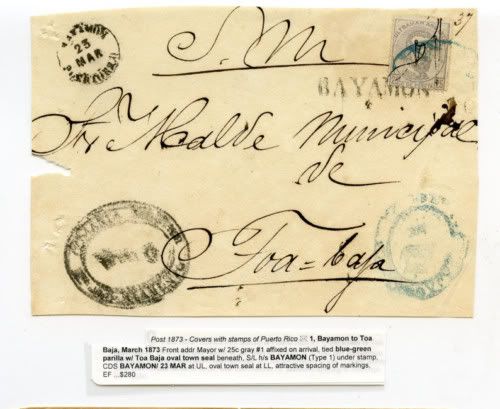 BAYAMON
23
MAR
37
S. M.
ULTRAMAR
BAYAMON
Sr Alcalde Municipal
de
Toa=baja
Post 1873 - Covers with stamps of Puerto Rico ✉ 1, Bayamon to Toa
Baja, March 1873 Front addr Mayor w/ 25c gray #1 affixed on arrival, tied blue-green
parilla w/ Toa Baja oval town seal beneath, S/L h/s BAYAMON (Type 1) under stamp,
CDS BAYAMON/ 23 MAR at UL, oval town seal at LL, attractive spacing of markings,
EF ...$280